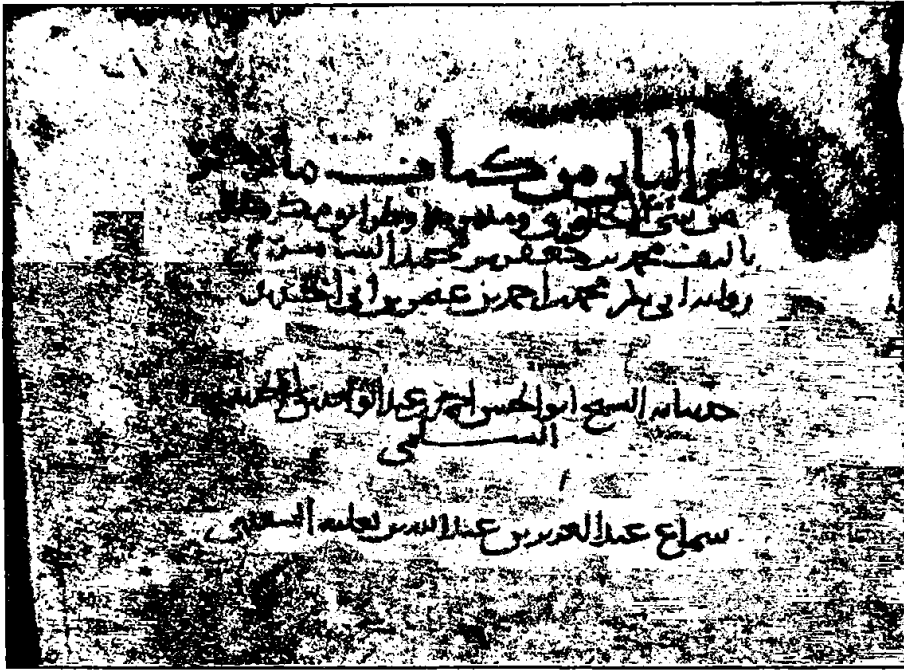 الجزء الثاني من كتاب ما جاء
من سيئ الاخلاق ومذمومها وطرائق مكروهها
تاليف محمد بن جعفر بن محمد السامري
رواية ابي بكر محمد بن احمد بن عثمن بن ابي الحديد
حدثنا به الشيخ ابو الحسن احمد بن عبد الواحد بن ابي الحديد
السلمي
سماع عبد العزيز بن عبد الله بن ثعلبة السعدي